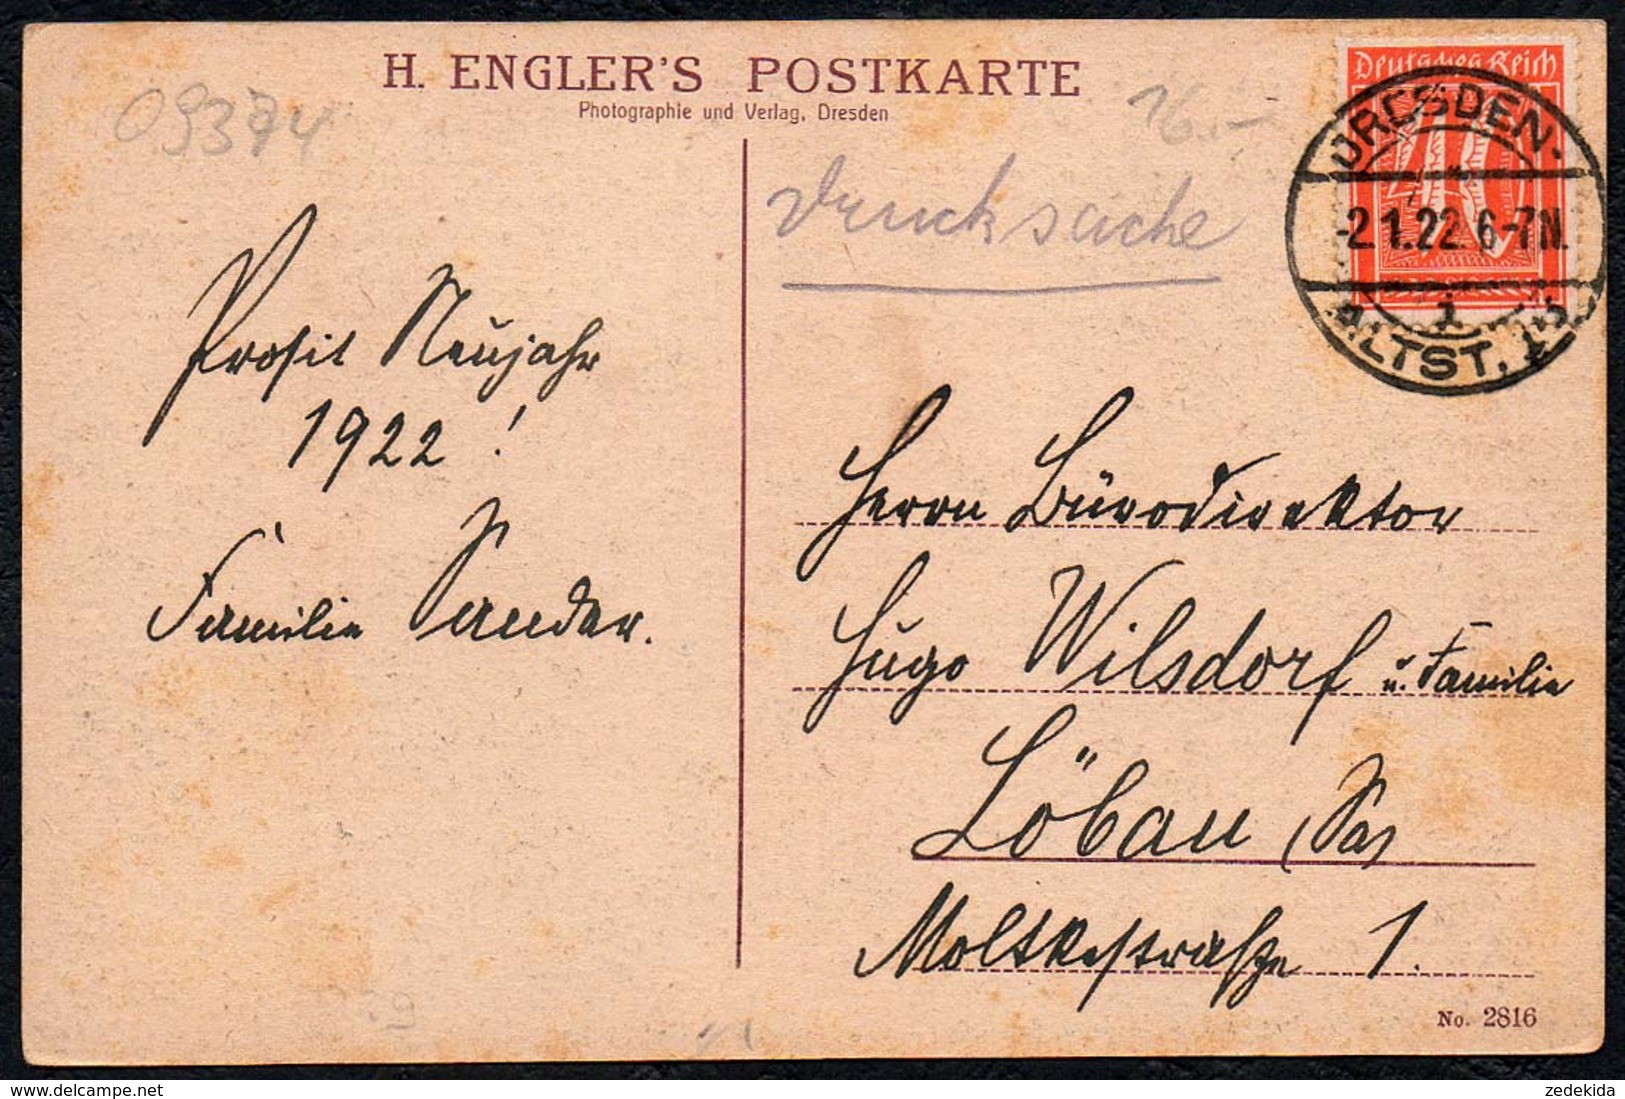 H. ENGLER'S POSTKARTE
Photographie und Verlag, Dresden
09374
16.-
Drucksache
Deutsches Reich
40
DRESDEN.
-2.1.22. 6-7 N.
ALTST. 1
Prosit Neujahr
1922!
Familie Sander.
Herrn Bürodirektor
Hugo Wilsdorf u. Familie
Löbau (Sa)
Moltkestraße 1.
No. 2816
delcampe.net
zedekida